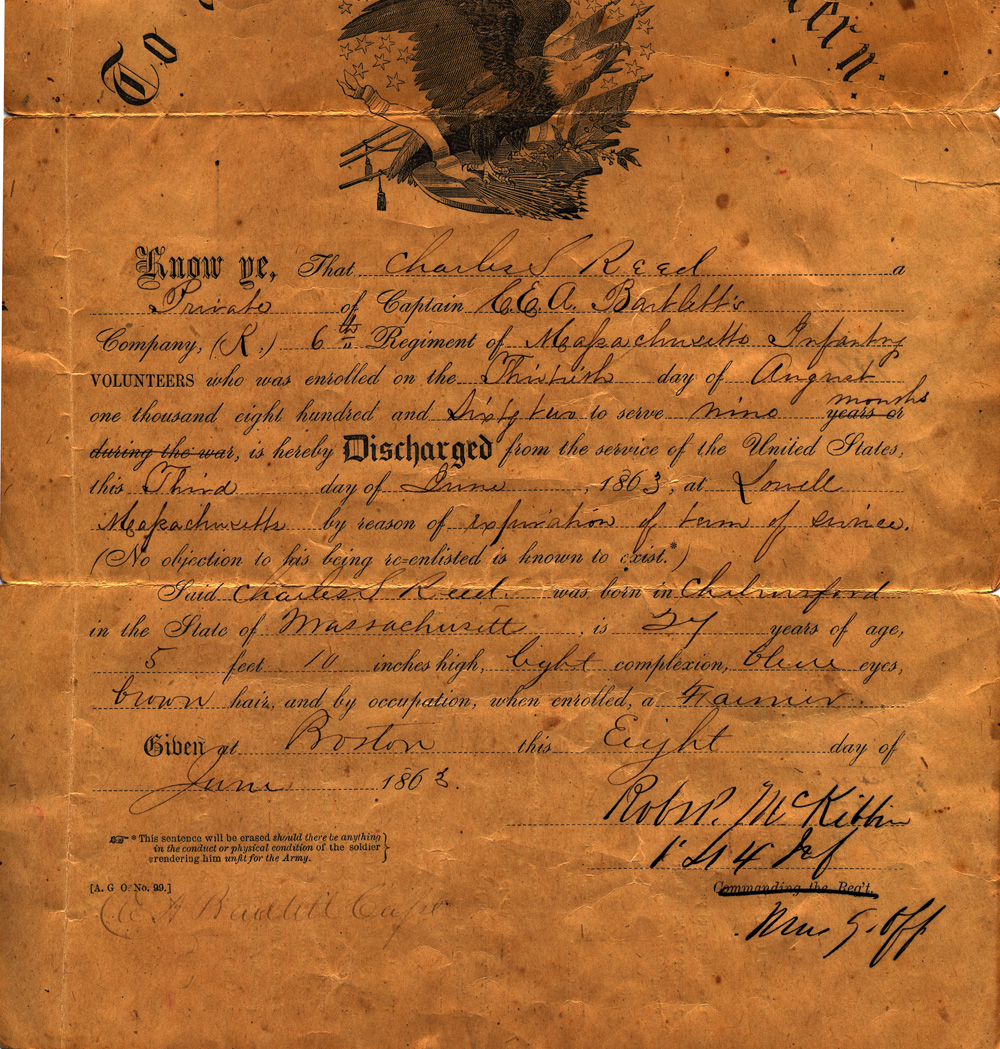 To ern.
Know ye, That Charles S Reed a
Private of Captain C.E.A. Bartlett's
Company, (K.) 6th Regiment of Massachusetts Infantry
VOLUNTEERS who was enrolled on the Thirtieth day of August
one thousand eight hundred and Sixty two to serve nine years or months
during the war, is hereby Discharged from the service of the United States,
this Third day of June, 1863, at Lowell
Massachusetts by reason of expiration of term of service.
(No objection to his being re-enlisted is known to exist.*)
Said Charles S Reed was born in Chelmsford
in the State of Massachusetts, is 27 years of age,
5 feet 10 inches high, light complexion, blue eyes,
brown hair, and by occupation, when enrolled, a Farmer.
Given at Boston this Eight day of
June 1863.
Robt P. McKibbin
1" Lt 4 Inf
Commanding the Reg't.
Mus. Off
* This sentence will be erased should there be anything
in the conduct or physical condition of the soldier
rendering him unfit for the Army.
[A. G. O. No. 99.]
Bartlett Capt